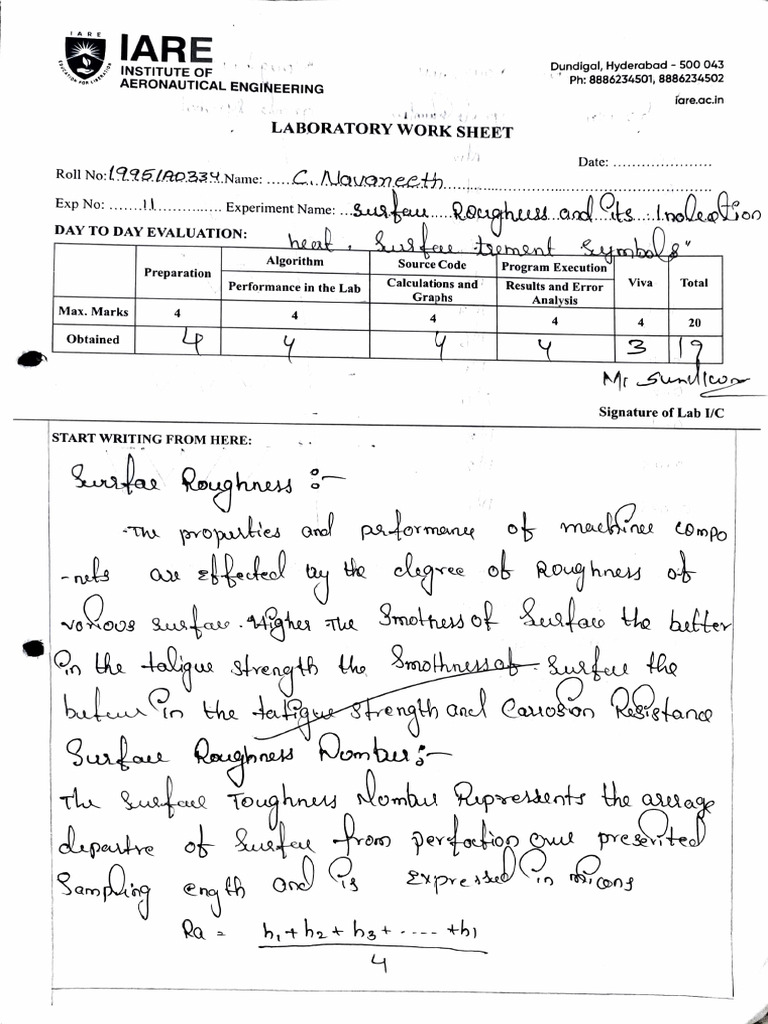 IARE
IARE
EDUCATION FOR LIBERATION
INSTITUTE OF
AERONAUTICAL ENGINEERING
Dundigal, Hyderabad - 500 043
Ph: 8886234501, 8886234502
iare.ac.in
LABORATORY WORK SHEET
Date: .....................
Roll No: 19951A0334 Name: C. Navaneeth
Exp No: 11 Experiment Name: Surface Roughness and its Indication
heat, Surface trement Symbols"
DAY TO DAY EVALUATION:
Preparation Algorithm Source Code Program Execution Viva Total
Performance in the Lab Calculations and Graphs Results and Error Analysis
Max. Marks 4 4 4 4 4 20
Obtained 4 4 4 4 3 19
Signature of Lab I/C
START WRITING FROM HERE:
Surfae Roughness :-
The properties and performance of machine compo
-nets are effected by the degree of Roughness of
various surface. Higher The Smotness of Surface the better
in the fatigue strength the Smothness of Surface the
in the fatigue strength and Carrosion Resistance
Surface Roughness Number:-
The Surface Toughness Number Represents the average
departre of Surface from perfection over prescrited
Sampling ength and is Expressed in micons
Ra = h1 + h2 + h3 + ..... + h1
4